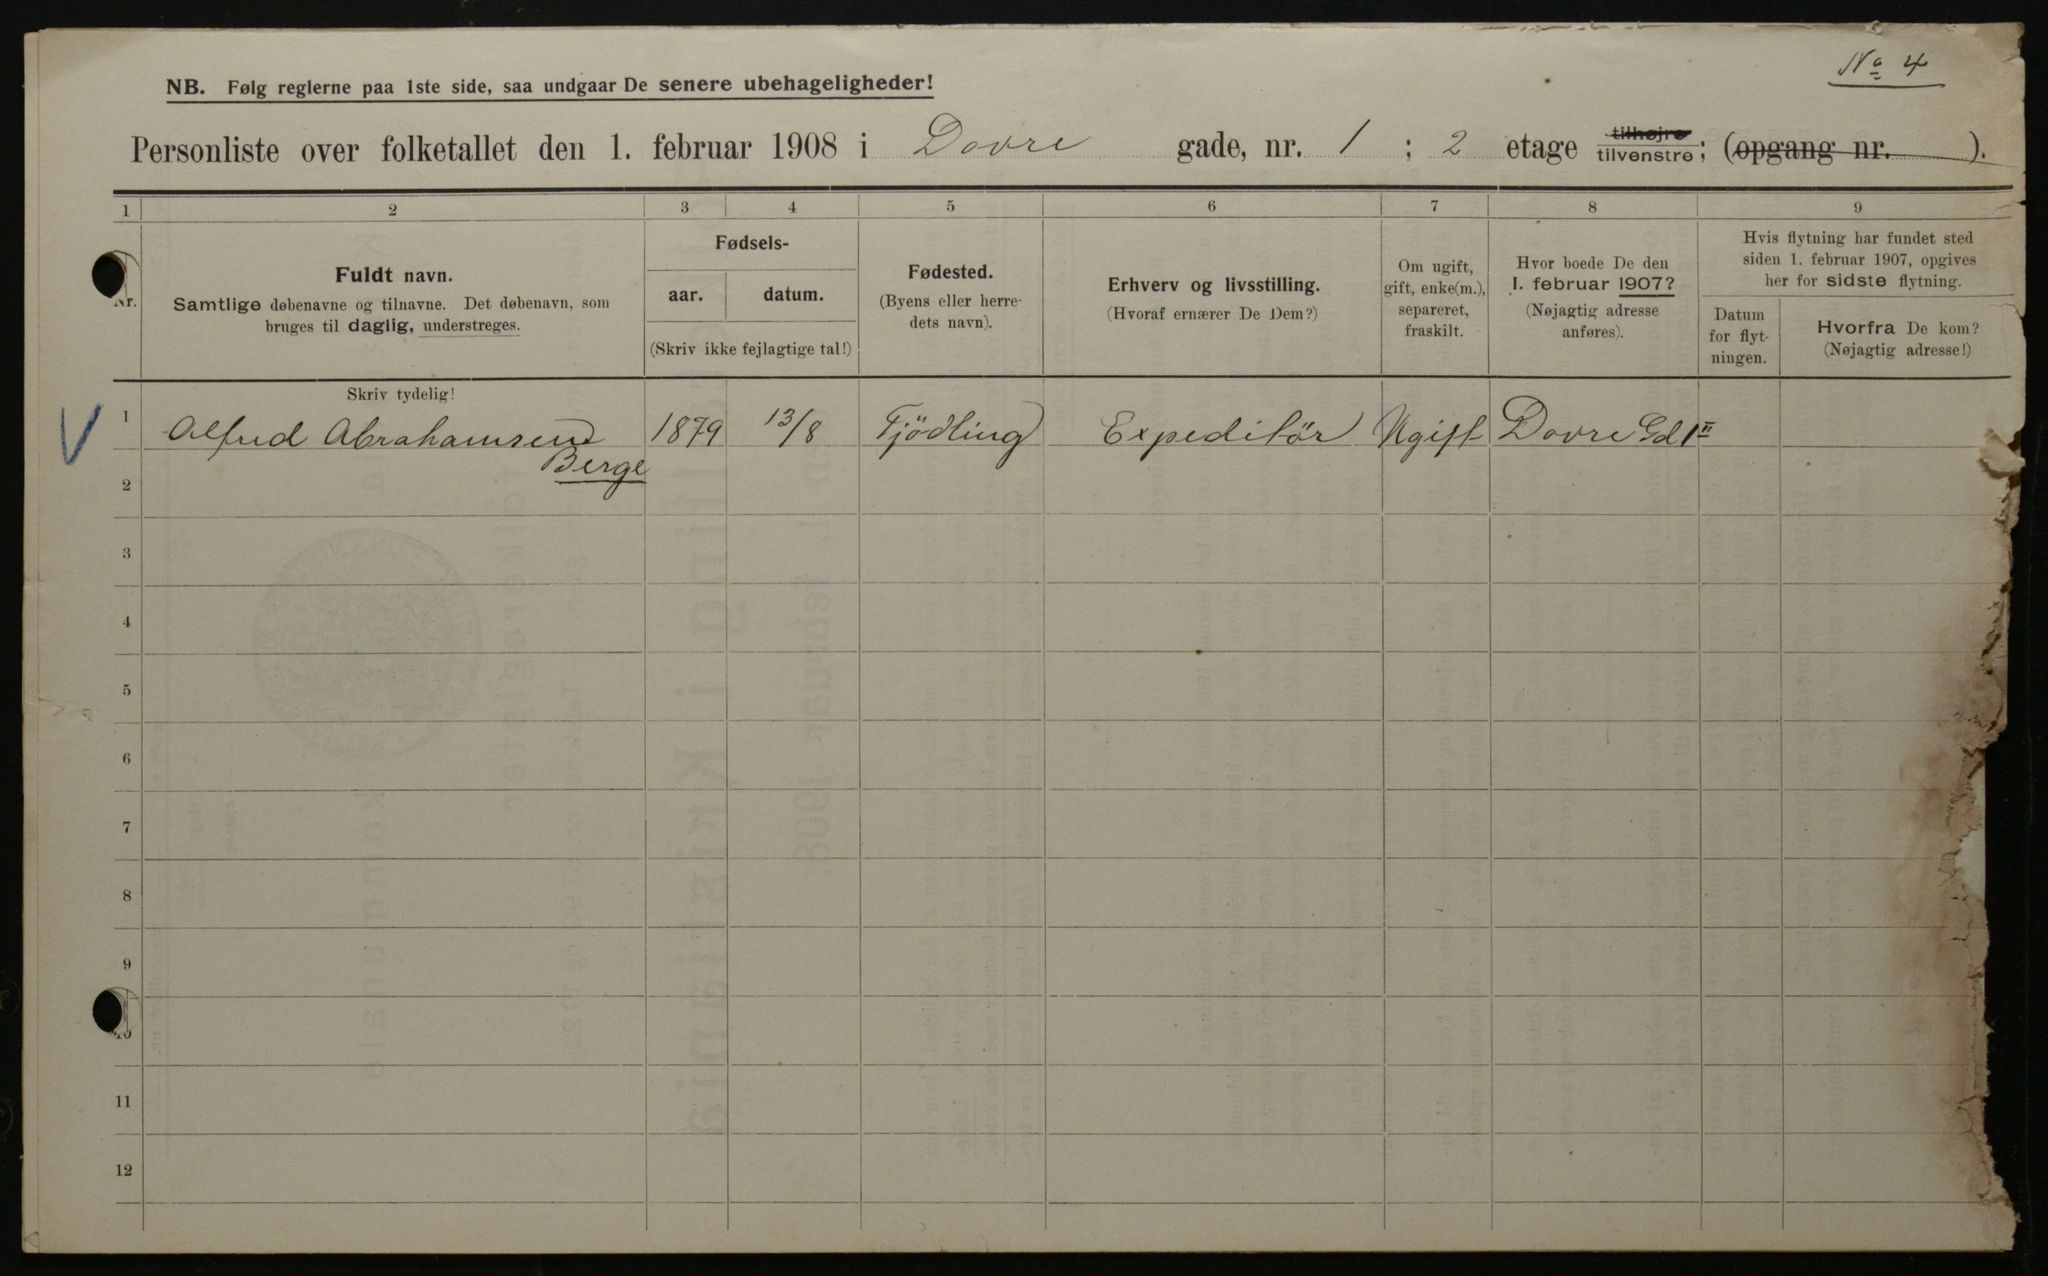 No 4
NB. Følg reglerne paa 1ste side, saa undgaar De senere ubehageligheder!
Personliste over folketallet den 1. februar 1908 i Dovre gade, nr. 1 ; 2 etage tilhøjre tilvenstre; (opgang nr. ).
1 2 3 4 5 6 7 8 9
Nr.
Fuldt navn.
Samtlige døbenavne og tilnavne. Det døbenavn, som
bruges til daglig, understreges.
Fødsels-
aar. datum.
(Skriv ikke fejlagtige tal!)
Fødested.
(Byens eller herre-
dets navn).
Erhverv og livsstilling.
(Hvoraf ernærer De Dem?)
Om ugift,
gift, enke(m.),
separeret,
fraskilt.
Hvor boede De den
1. februar 1907?
(Nøjagtig adresse
anføres).
Hvis flytning har fundet sted
siden 1. februar 1907, opgives
her for sidste flytning.
Datum
for flyt-
ningen.
Hvorfra De kom?
(Nøjagtig adresse!)
Skriv tydelig!
V 1 Alfred Abrahamsen 1879 13/8 Tjödling Expeditör Ugift Dovre Gd 1 II
Berge
2
3
4
5
6
7
8
9
10
11
12